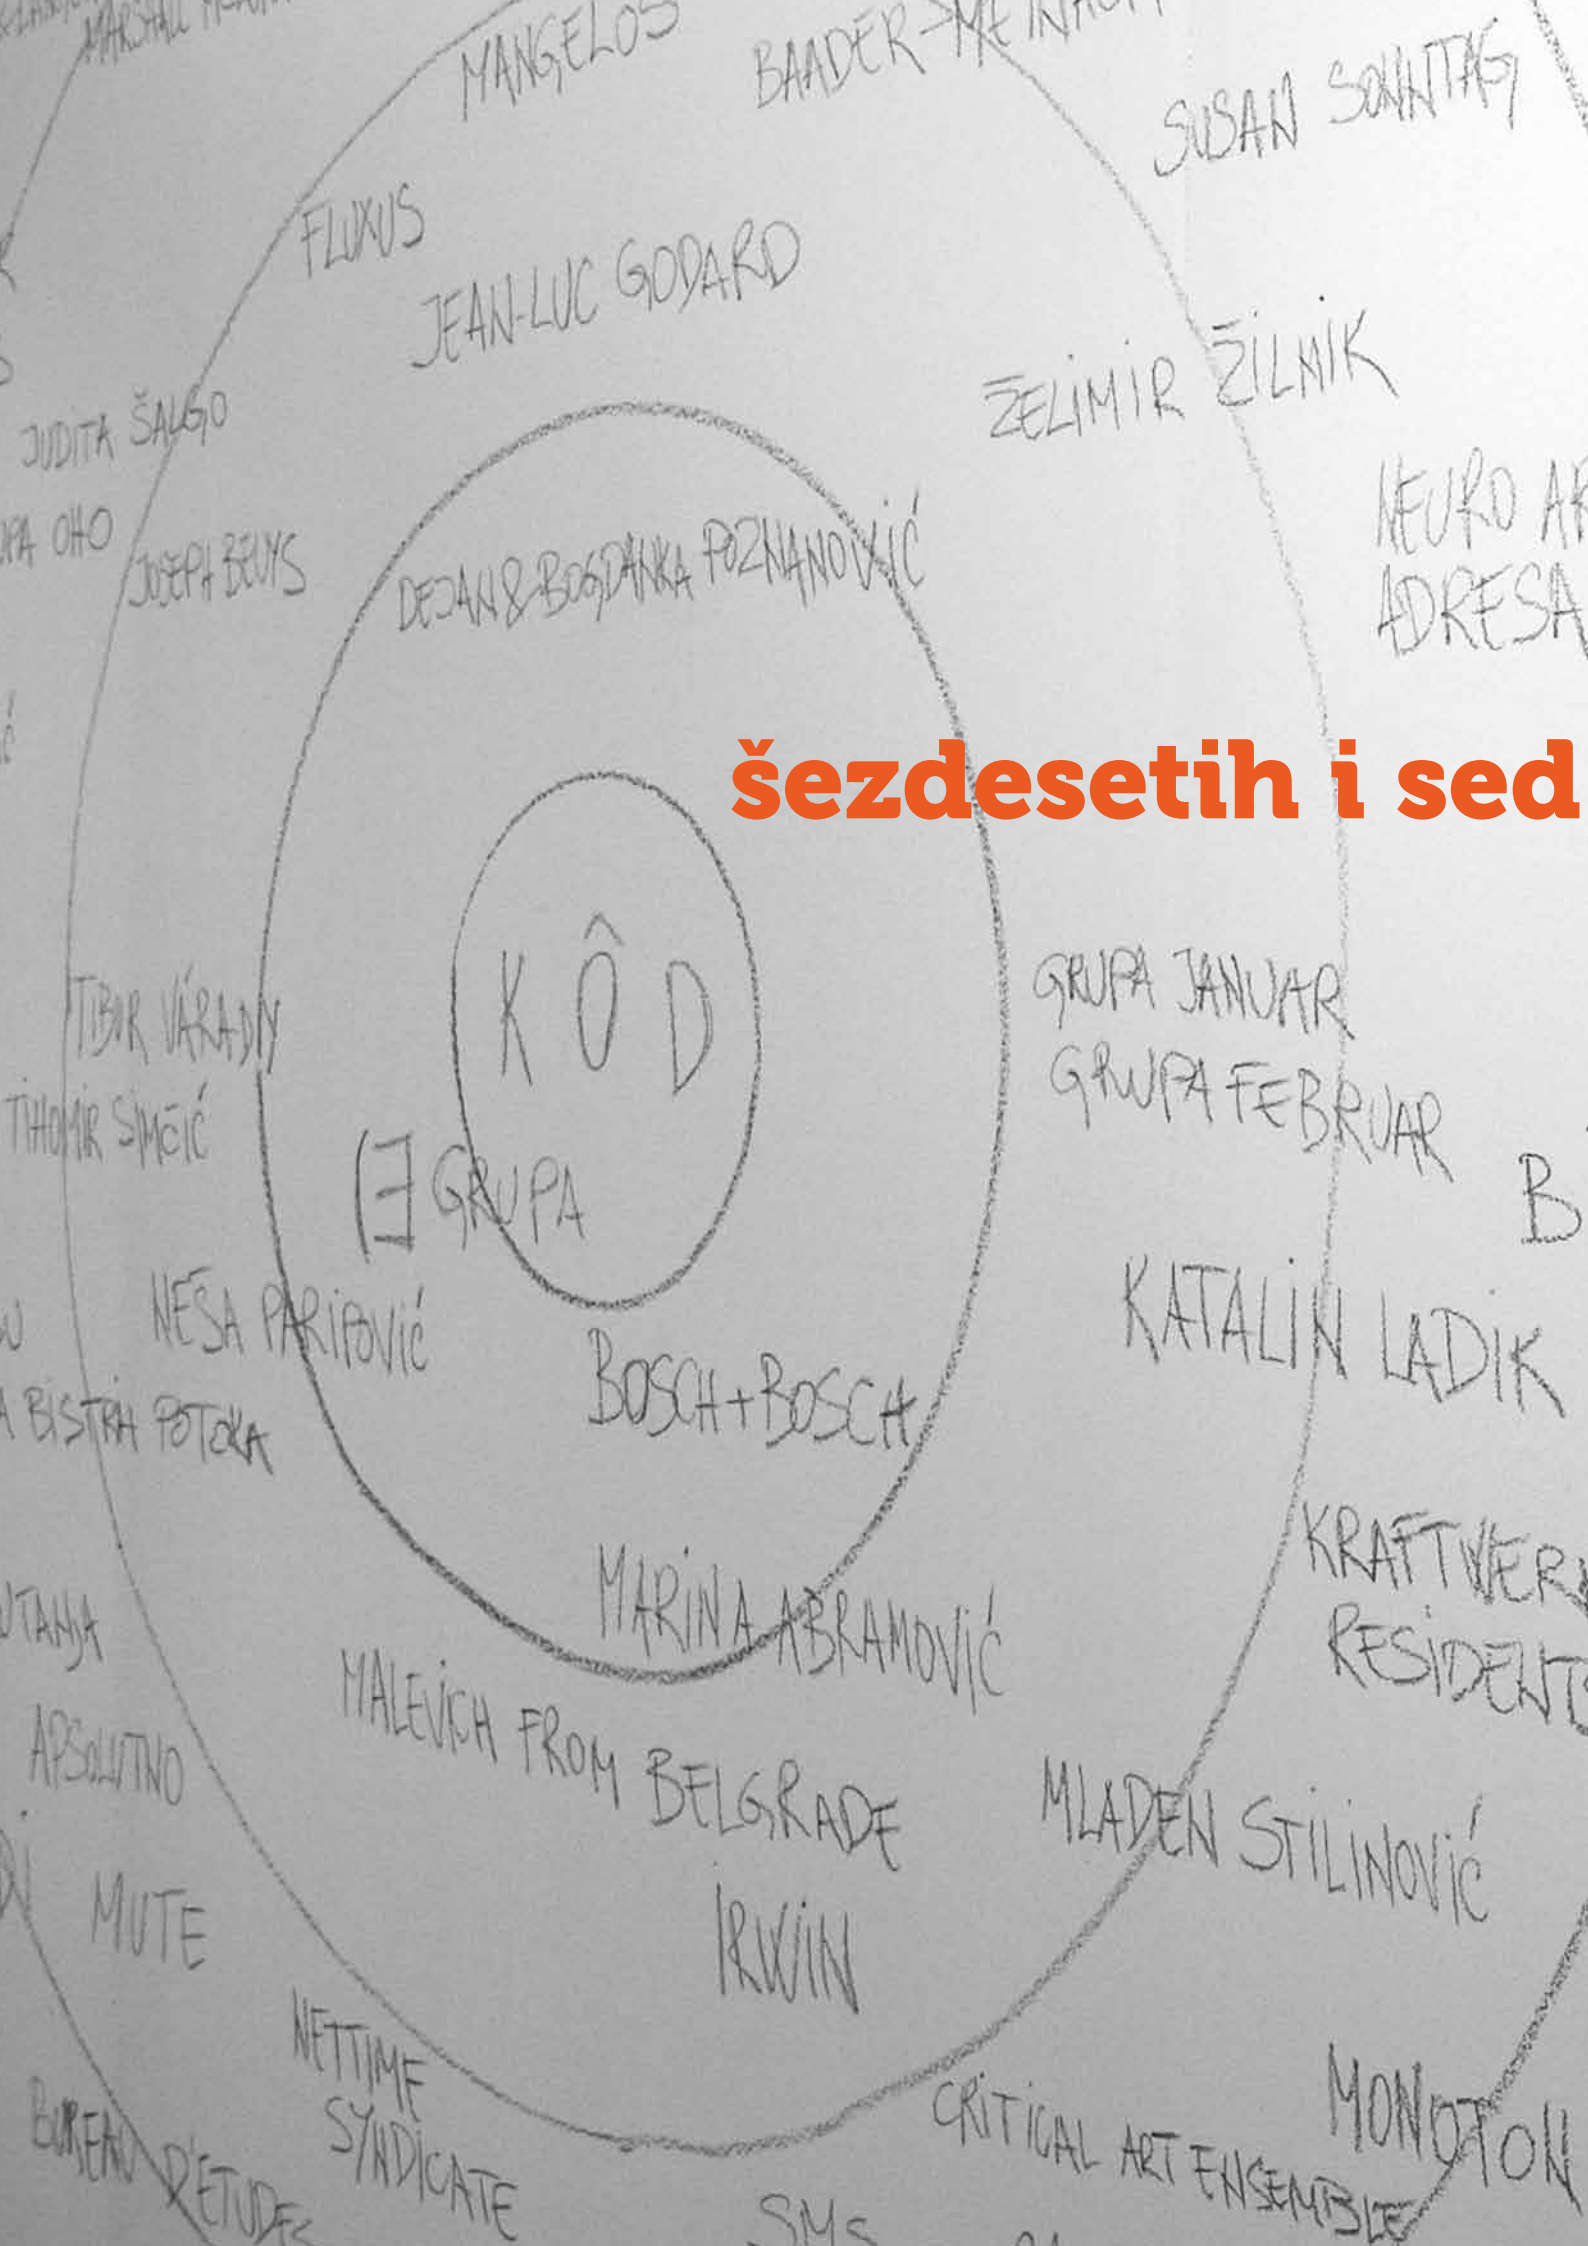 MANGELOS
BAADER-MEINHOFF
SUSAN SONNTAG
FLUXUS
JEAN-LUC GODARD
ŽELIMIR ŽILNIK
JUDITA ŠALGO
OHO
JOSEPH BEUYS
DEJAN & BOGDANKA POZNANOVIĆ
NEURO
ADRESA
šezdesetih i sed
KÔD
GRUPA JANUAR
GRUPA FEBRUAR
TIBOR VÁRADY
TIHOMIR SIMČIĆ
(∃ GRUPA
B
KATALIN LADIK
NEŠA PARIPOVIĆ
BOSCH+BOSCH
BISTRIH POTOKA
KRAFTWER
RESIDENTS
MARINA ABRAMOVIĆ
MALEVICH FROM BELGRADE
APSOLUTNO
MLADEN STILINOVIĆ
MUTE
IRWIN
NETTIME
SYNDICATE
BUREAU D'ETUDES
CRITICAL ART ENSEMBLE
MONOTON
SMS